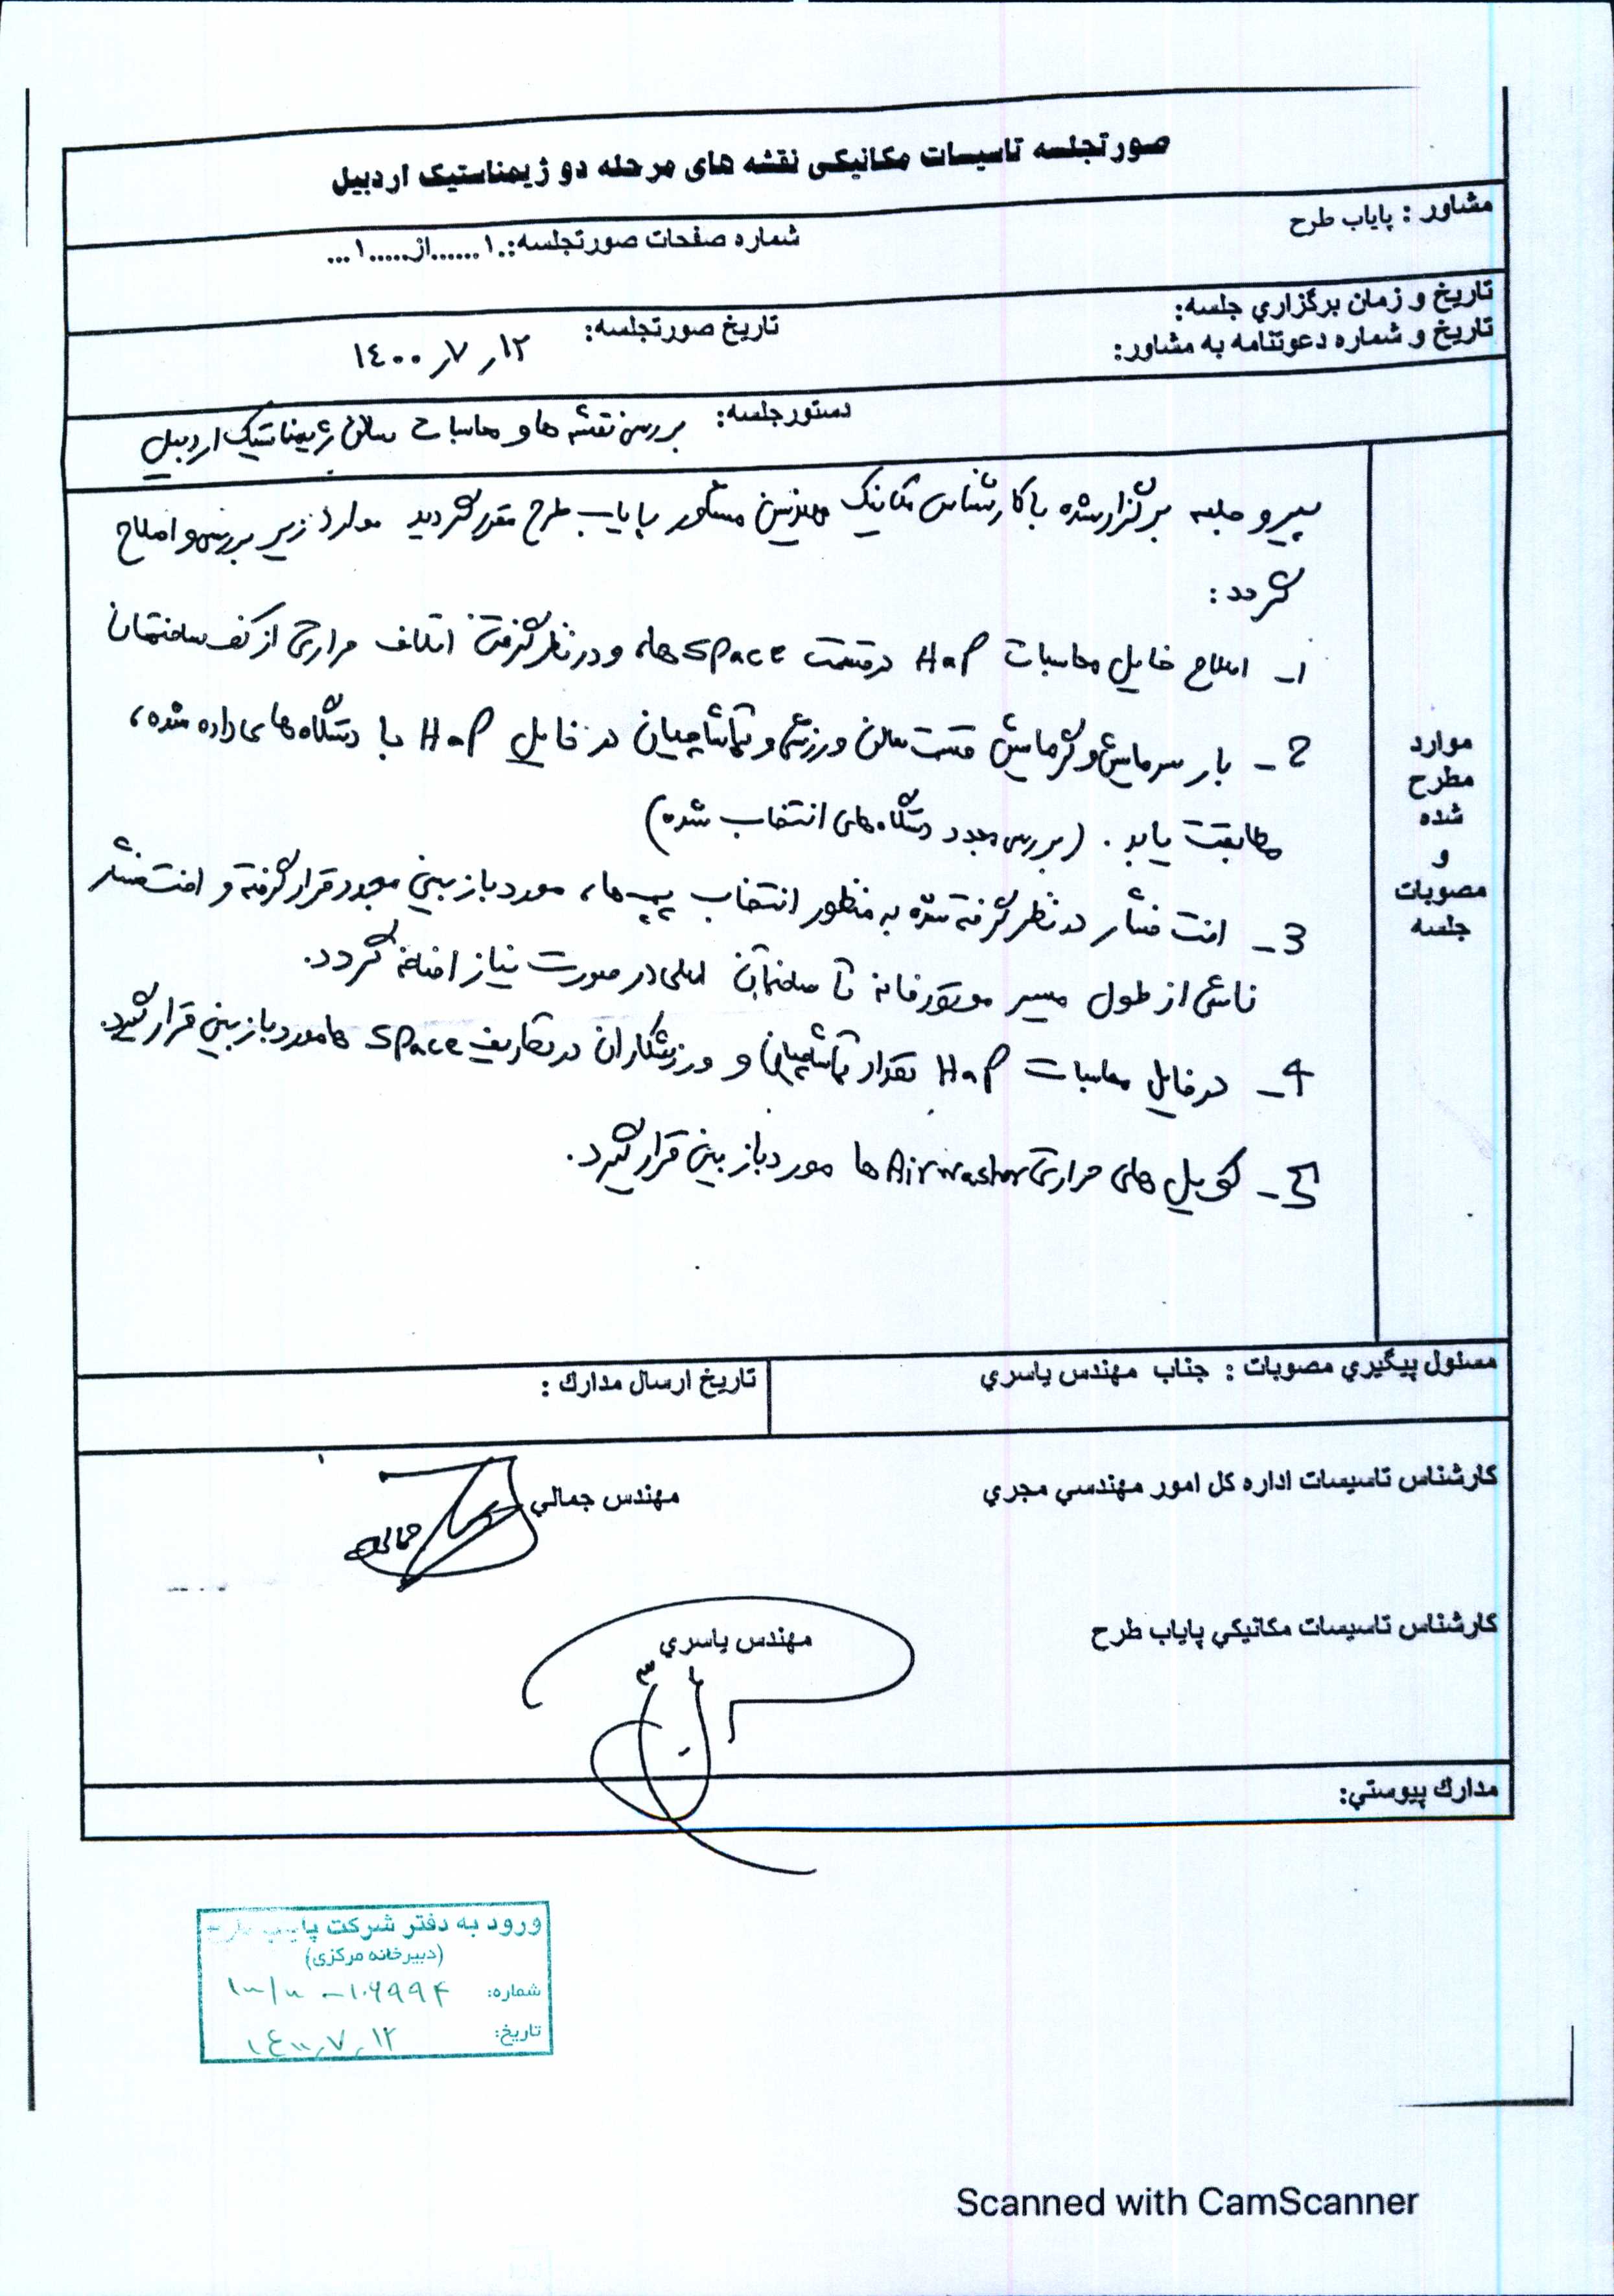 صورتجلسه تاسیسات مکانیکی نقشه های مرحله دو ژیمناستیک اردبیل
مشاور : پایاب طرح
شماره صفحات صورتجلسه:.۱......از.....۱...
تاریخ و زمان برگزاري جلسه:
تاریخ و شماره دعوتنامه به مشاور:
تاریخ صورتجلسه: ۱۴۰۰٫۷٫۱۲
دستورجلسه: بررسی نقشه ها و محاسبات سالن ژیمناستیک اردبیل
موارد
مطرح
شده
و
مصوبات
جلسه
پیرو جلسه برگزار شده با کارشناس مکانیک مهندسین مشاور پایاب طرح مقرر گردید موارد زیر بررسی و اصلاح
گردد :
1- اصلاح فایل محاسبات HaP در قسمت space ها، و در نظر گرفتن اتلاف حرارتی از کف ساختمان
2- بار سرمایش و گرمایش قسمت سالن ورزشی و تماشاچیان در فایل HaP با دستگاه های داده شده،
مطابقت یابد . (بررسی مجدد دستگاه های انتخاب شده)
3- افت فشار در نظر گرفته شده به منظور انتخاب پمپ ها، مورد بازبینی مجدد قرار گرفته و افت فشار
ناشی از طول مسیر موتورخانه تا ساختمان اصلی در صورت نیاز اضافه گردد.
4- در فایل محاسبات HaP تعداد تماشاچیان و ورزشکاران در تعاریف space ها مورد بازبینی قرار گیرد.
5- کویل های حرارتی Airwasher ها مورد بازبینی قرار گیرد.
مسئول پیگیري مصوبات : جناب مهندس یاسري
تاریخ ارسال مدارك :
کارشناس تاسیسات اداره کل امور مهندسي مجري
مهندس جمالي
جمالی
کارشناس تاسیسات مکانیکي پایاب طرح
مهندس یاسري
مدارك پیوستي:
ورود به دفتر شرکت پایاب طرح
(دبیرخانه مرکزی)
شماره: ۱۰۶۹۹۴
تاریخ: ۱۴۰۰٫۷٫۱۲
Scanned with CamScanner